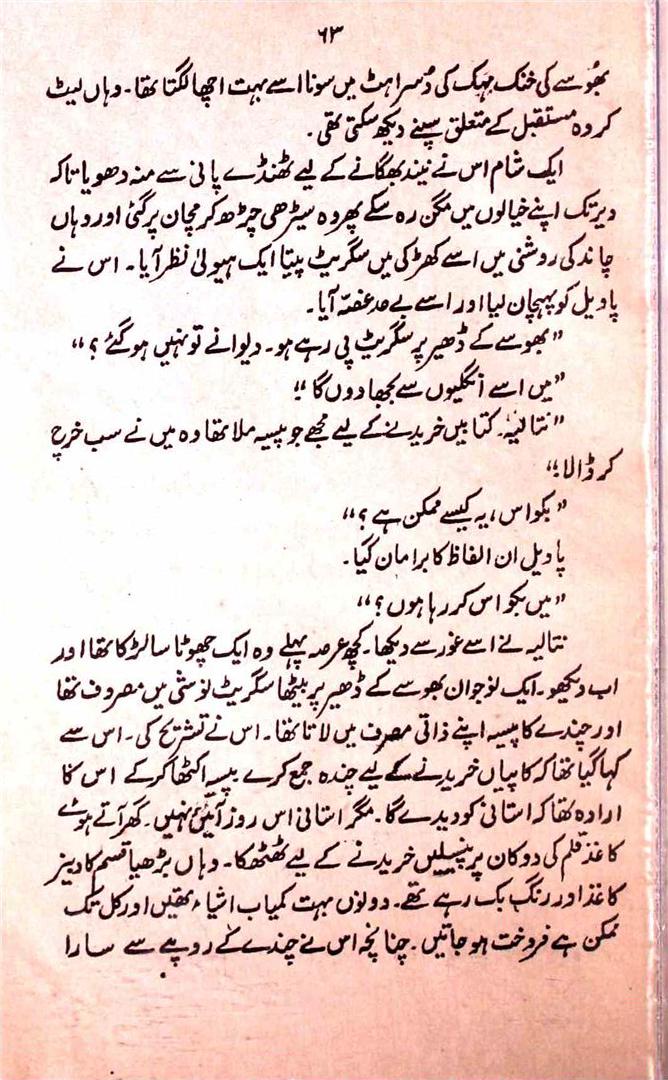 ۶۳
بھُوسے کی خنک مہک کی دُسراہٹ میں سونا اسے بہت اچھا لگتا تھا۔ وہاں لیٹ
کر وہ مستقبل کے متعلق سپنے دیکھ سکتی تھی۔
ایک شام اس نے نیند بھگانے کے لیے ٹھنڈے پانی سے منہ دھویا تاکہ
دیر تک اپنے خیالوں میں مگن رہ سکے پھر وہ سیڑھی چڑھ کر مچان پر گئی اور وہاں
چاند کی روشنی میں اسے کھڑکی میں سگریٹ پیتا ایک ہیولیٰ نظر آیا۔ اس نے
پاویل کو پہچان لیا اور اسے بے حد غصّہ آیا۔
”بھوسے کے ڈھیر پر سگریٹ پی رہے ہو۔ دیوانے تو نہیں ہو گئے؟“
”میں اسے انگلیوں سے بجھا دوں گا۔“
”نتالیہ۔ کتابیں خریدنے کے لیے مجھے جو پیسہ ملا تھا وہ میں نے سب خرچ
کر ڈالا۔“
”بکواس، یہ کیسے ممکن ہے؟“
پاویل ان الفاظ کا برا مان گیا۔
”میں بکواس کر رہا ہوں؟“
نتالیہ نے اسے غور سے دیکھا۔ کچھ عرصہ پہلے وہ ایک چھوٹا سا لڑکا تھا اور
اب دیکھو۔ ایک نوجوان بھوسے کے ڈھیر پر بیٹھا سگریٹ نوشی میں مصروف تھا
اور چندے کا پیسہ اپنے ذاتی مصرف میں لاتا تھا۔ اس نے تشریح کی۔ اس سے
کہا گیا تھا کہ کاپیاں خریدنے کے لیے چندہ جمع کرے پیسہ اکٹھا کر کے اس کا
ارادہ تھا کہ استانی کو دیدے گا۔ مگر استانی اس روز آئی نہیں۔ گھر آتے ہوئے
کاغذ قلم کی دوکان پر پنسلیں خریدنے کے لیے ٹھٹھکا۔ وہاں بڑھیا قسم کا دبیز
کاغذ اور رنگ بک رہے تھے۔ دونوں بہت کمیاب اشیاء تھیں اور کل تک
ممکن ہے فروخت ہو جاتیں۔ چنانچہ اس نے چندے کے روپیے سے سارا